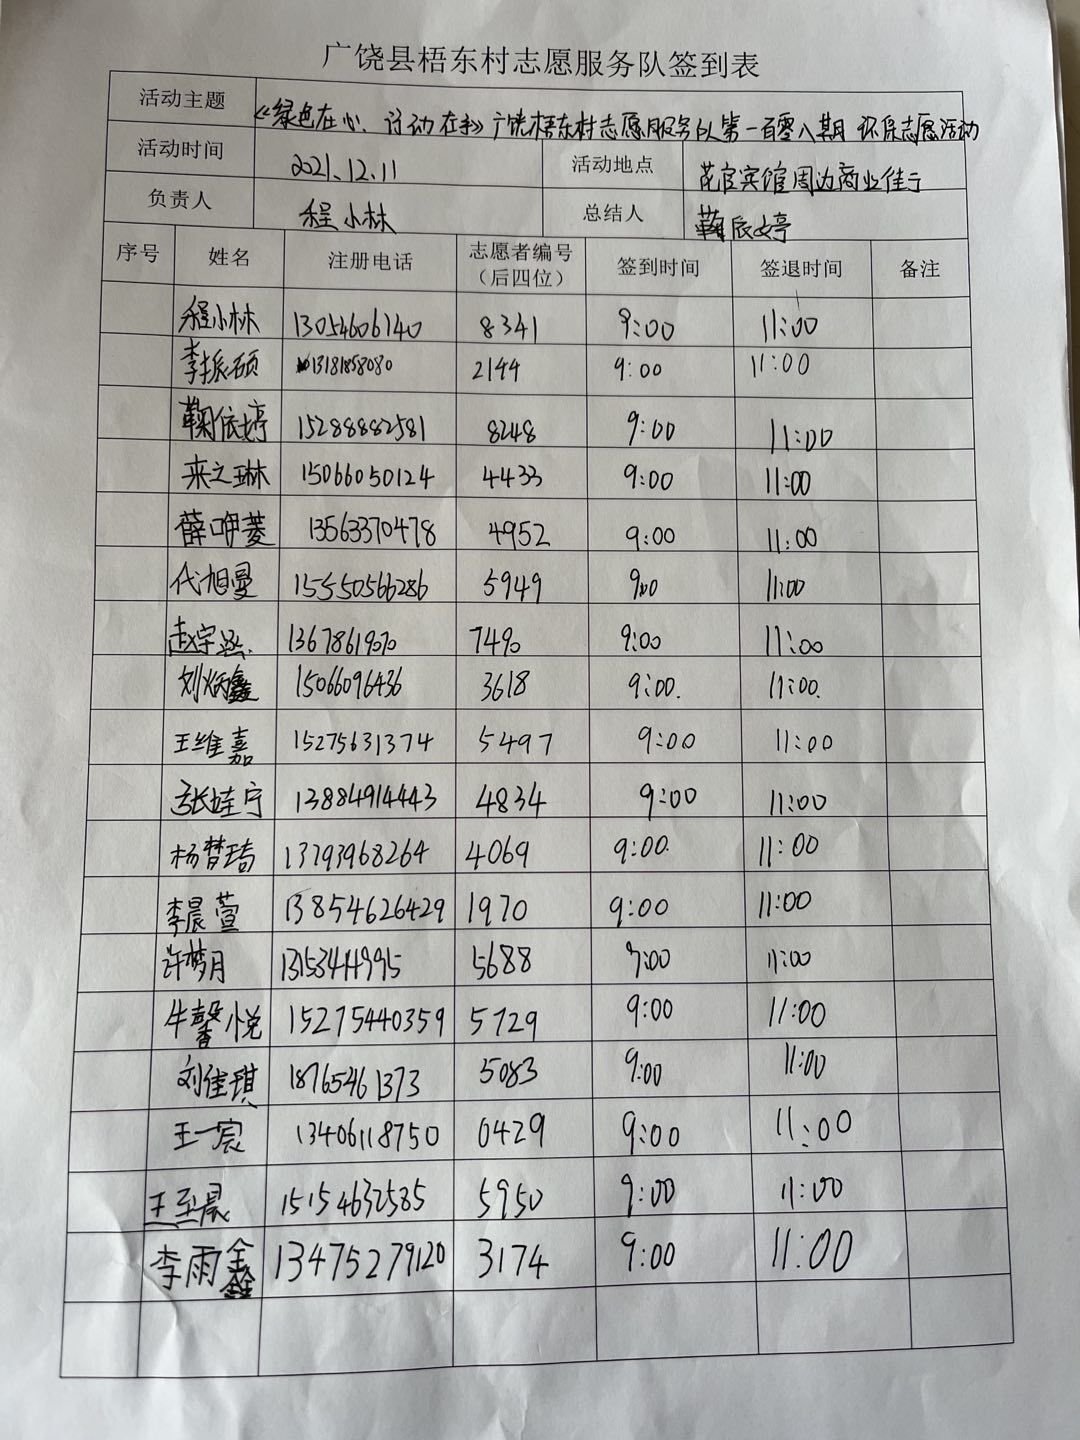 广饶县梧东村志愿服务队签到表
活动主题 《绿色在心、行动在手》广饶梧东村志愿服务队第一百零八期 环保志愿活动
活动时间 2021.12.11 活动地点 花官宾馆周边商业街
负责人 程小林 总结人
序号 姓名 注册电话 志愿者编号（后四位） 签到时间 签退时间 备注
程小林 13054606740 8341 9:00 11:00
李振硕 13181858080 2144 9:00 11:00
鞠依婷 15288882581 8248 9:00 11:00
来之琳 15066050124 4433 9:00 11:00
薛咿菱 13563370478 4952 9:00 11:00
代旭曼 15550566286 5949 9:00 11:00
赵宇涵 7490 9:00 11:00
刘炳鑫 15066096436 3618 9:00. 11:00.
王维嘉 15275631374 5497 9:00 11:00
张娃宁 13884914443 4834 9:00 11:00
杨梦琦 13793968264 4069 9:00 11:00
李晨萱 13854626429 1970 9:00 11:00
许梦月 13153444995 5688 9:00 11:00
牛馨悦 15275440359 5729 9:00 11:00
刘佳琪 18765461373 5083 9:00 11:00
王一宸 13406118750 0429 9:00 11:00
王至晨 15154632585 5950 9:00 11:00
李雨鑫 13475279120 3174 9:00 11:00